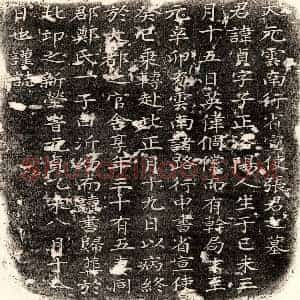 大元雲南行省宣使張君之墓
君諱貞字子正洛陽人生于己未三
月十五日英偉倜儻而有幹局至
元辛卯充雲南諸路行中書省宣使
癸巳乘轉赴北正月十九日以病終
於大都之官舍享年三十有五同
郡鄭氏一子曰沂而讀書歸葬於
北邙之新塋者元貞乙未八月十八
日也謹誌